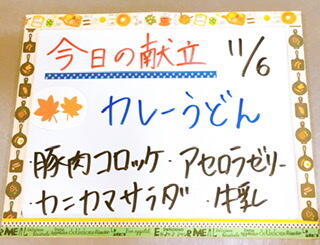 今日の献立 11/6
カレーうどん
・豚肉コロッケ ・アセロラゼリー
・カニカマサラダ ・牛乳